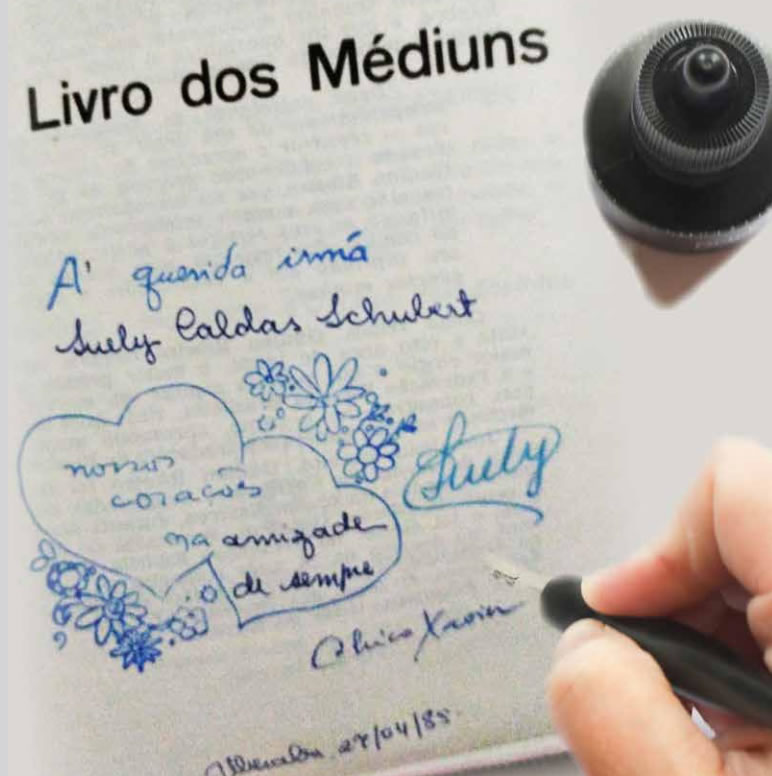 Livro dos Médiuns
A' querida irmã
Suely Caldas Schubert
nossos
corações
na amizade
de sempre
Suely
Chico Xavier
27/04/85